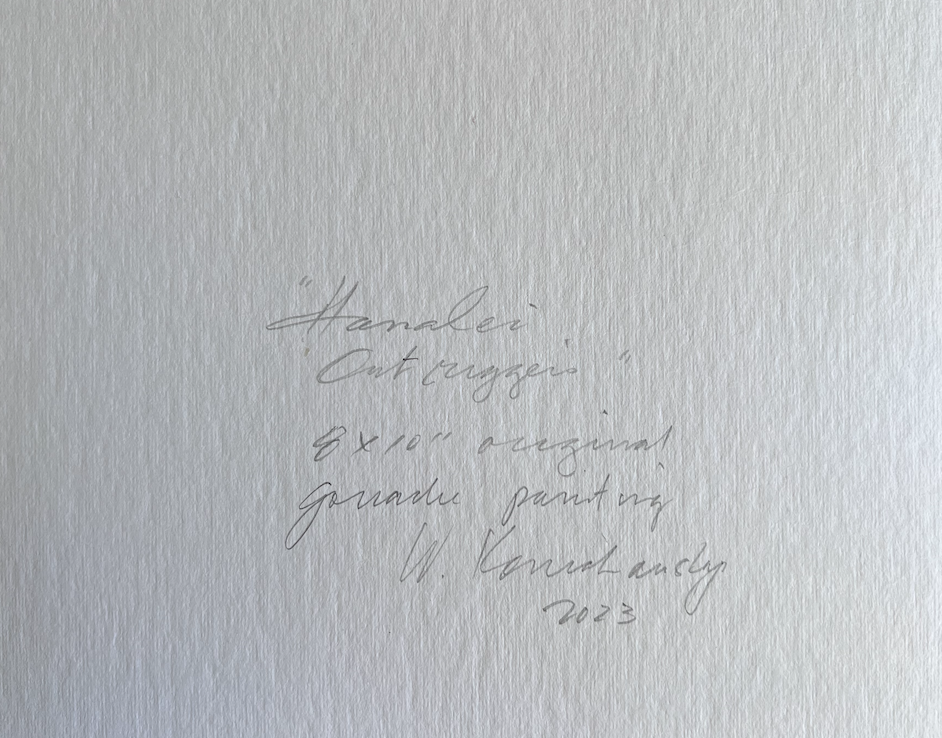 "Hanalei
Outriggers"
8x10" original
gouache painting
W.
2023